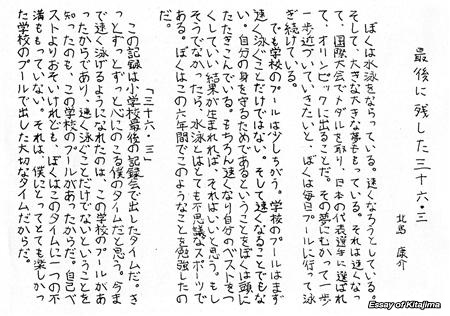 最後に残した三十六・三
北島　康介
ぼくは水泳をならっている。速くなろうとしている。
そして、大きな大きな夢をもっている。それは速くなっ
て、国際大会でメダルを取り、日本の代表選手に選ばれ
て、オリンピックに出ることだ。その夢にむかって一歩
一歩近づいていきたいと、ぼくは毎日プールに行って泳
ぎ続けている。
でも学校のプールは少しちがう。学校のプールはまず
速く泳ぐことだけではない。そして、速くなることでもな
い。自分の身を守るためであるということをぼくは頭に
たたきこんでいる。もちろん速くなり自分のベストをつ
くしていい結果が生まれれば、それはいいと思う。もし
そうでなかったら、水泳とはとても不思議なスポーツで
ある。ぼくはこの六年間でこのようなことを勉強したの
「三十六・三」
この記録は小学校最後の記録会で出したタイムだ。き
っとずっとずっと心にのこる僕のタイムだと思う。今ま
で速く泳げるようになれたのは、この学校のプールがあ
ったからであり、速く泳ぐことだけでないということを
知ったのも、この学校のプールがあったからだ。自己ベ
ストよりおそいけれども、ぼくはこのタイムに一つの不
満ももっていない。それは、僕にとってとても楽しかっ
た学校のプールで出した大切なタイムだからだ。
Essay of Kitajima